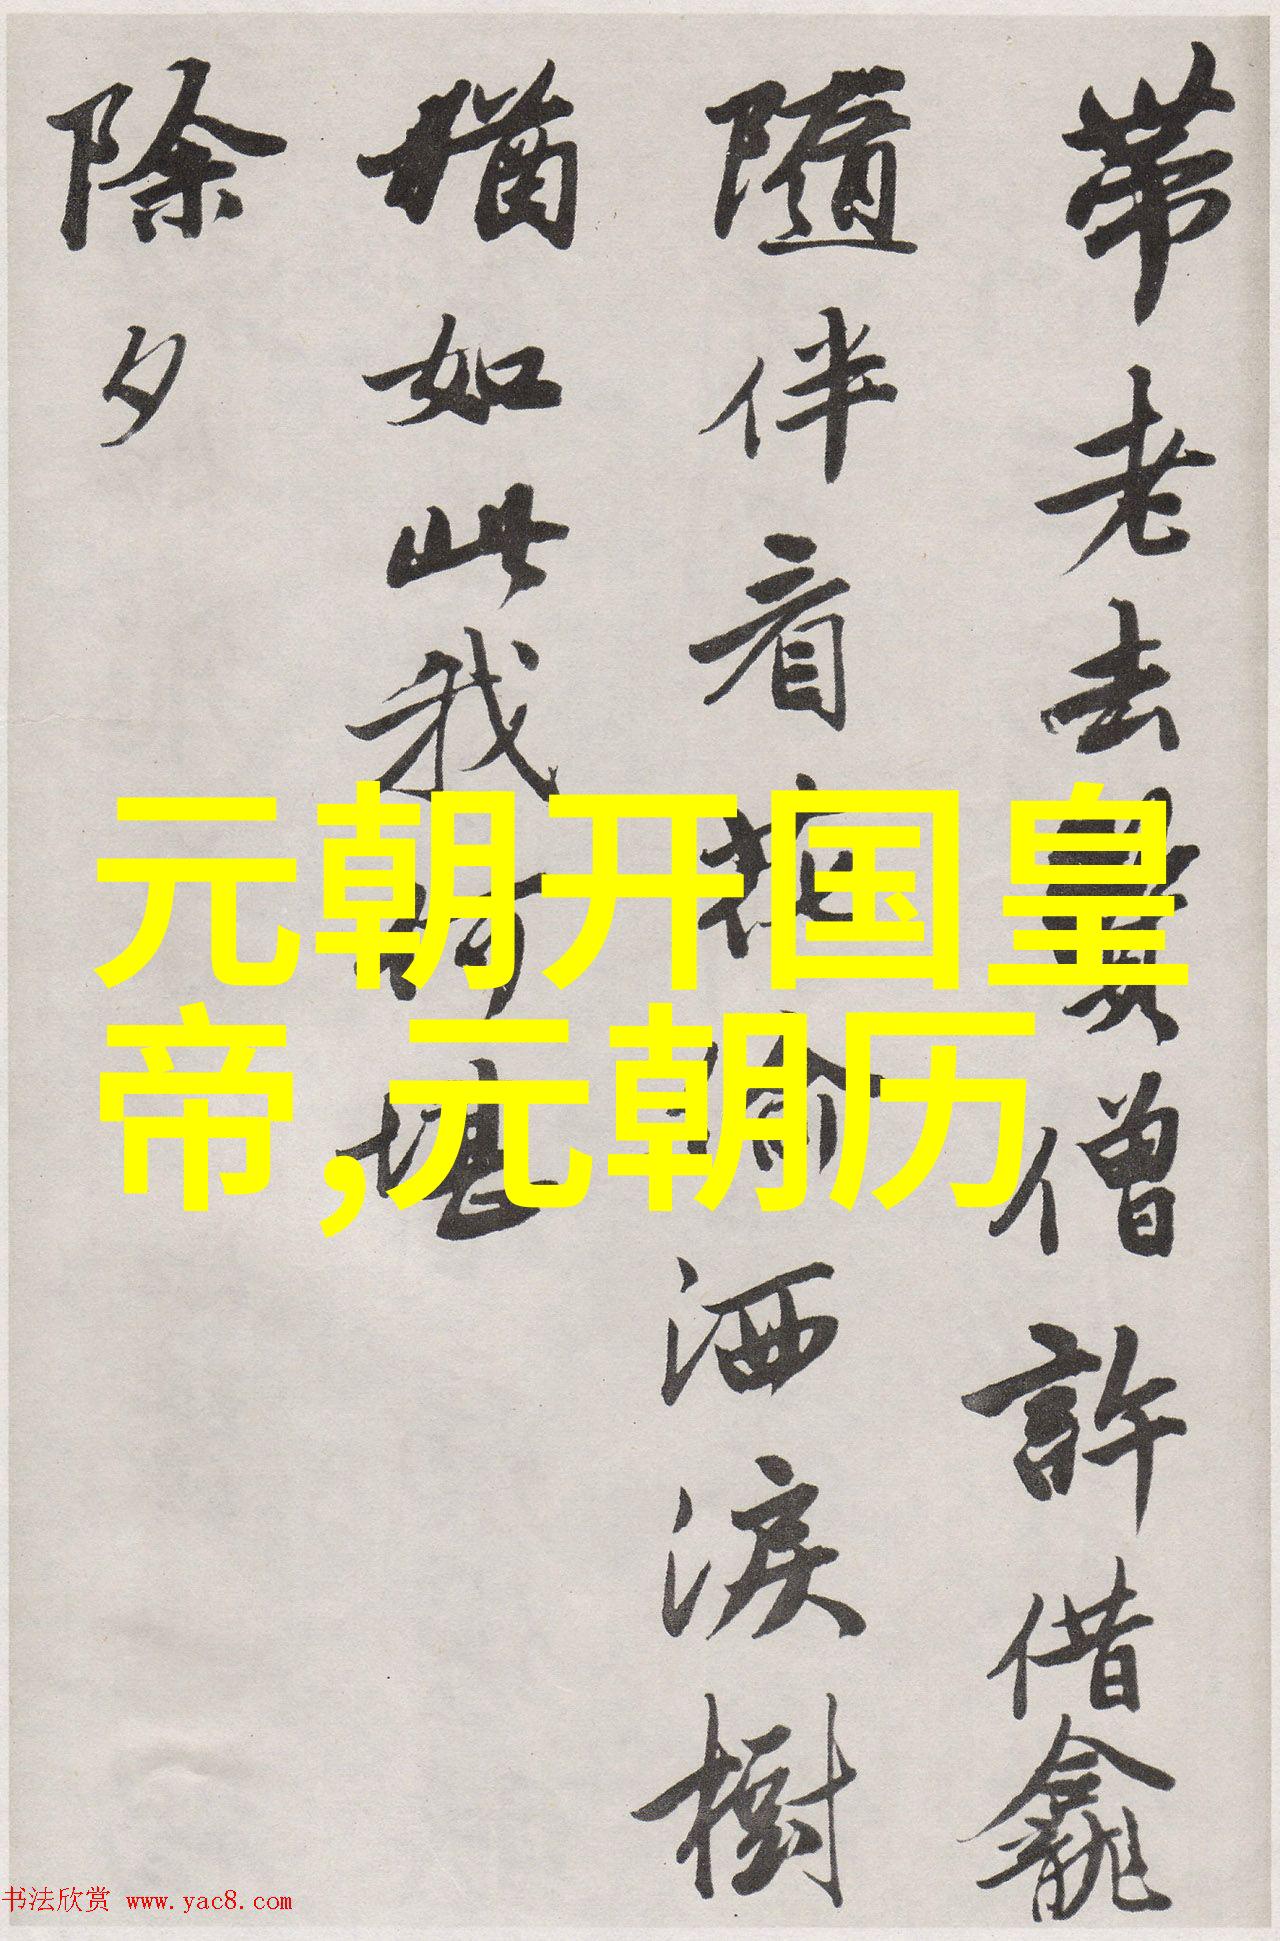 帶老去僧許借龕
隨伴看花偷洒淚樹
猶如此我何堪
除夕
元朝开国皇
帝,元朝历
书法欣赏 www.yac8.com